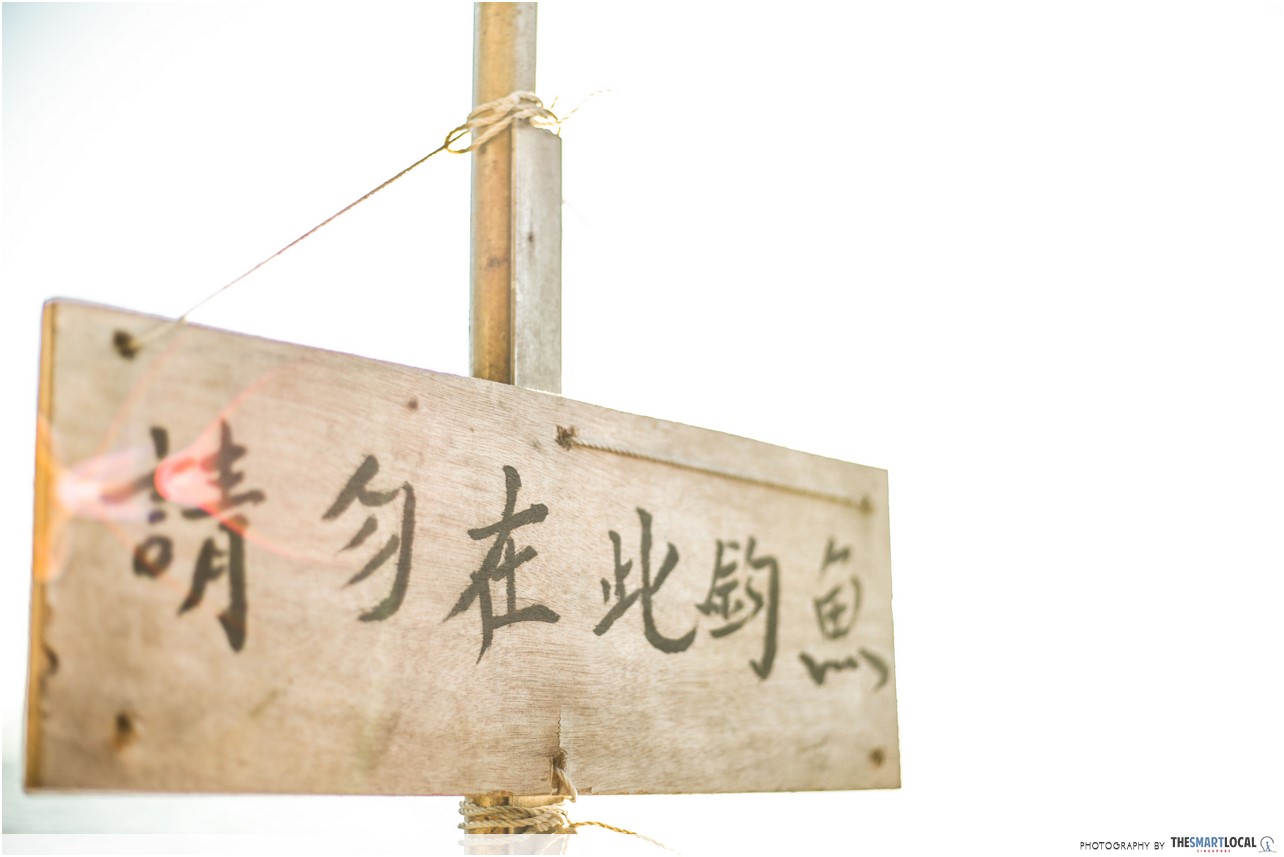 請勿在此釣魚
PHOTOGRAPHY BY THESMARTLOCAL
SINGAPORE